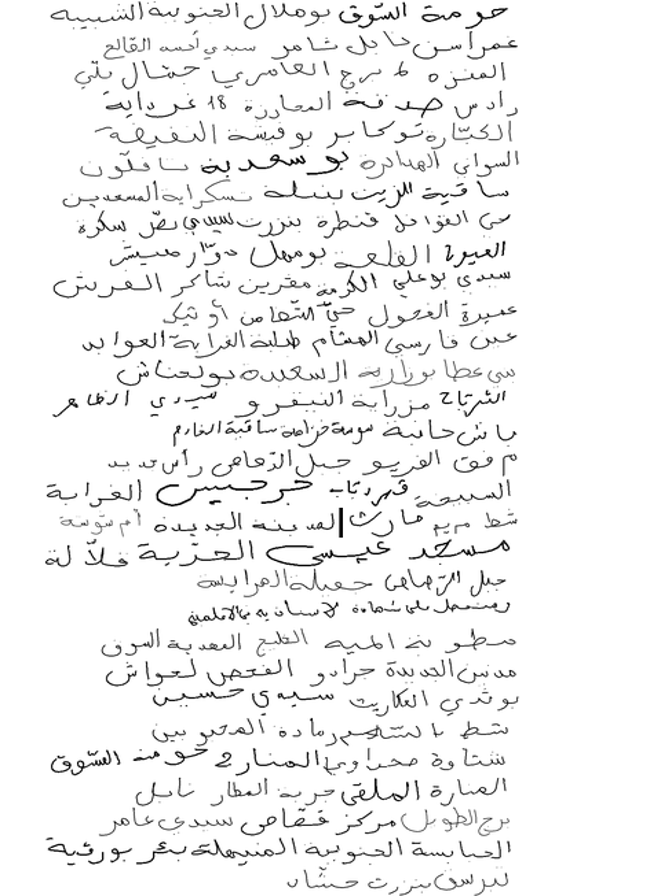 حومة السوق بوهلال الجنوبية الشبيبة
غمراسن نابل شامر سيدي أحمد القالع
المنزه 6 برج العامري حشاد بلي
رادس صدقة المحارزة 18 غرداية
الكبارة توكابر بوفيشة النفيضة
السواني الهدادرة بوسعدية تافلون
ساقية الزيت بنبلة تسكراية المسعدين
حي الغوافل قنطرة بنزرت سيدي نصر سكرة
القلعة بومهل دوار
سيدي بوعلي الكرمة مقرين شاكر العريش
عميرة الفحول حي التضامن أوتيك
عين فارسي الهشام طلبة الغرابة العوابد
سي عطا بوزارية السعيدة بولحناش
الشرتاح مزراية النيفرو سيدي الظاهر
باش حانبة ساقية الخادم
مفق الفريو جبل الرصاص رأس جديد
السبيعة جرجيس الغرابة
شط مريم مارث المدينة الجديدة أم شوشة
مسجد عيسى العزبة فلالة
جبل الرصاص جميلة المرايسة
متحصل على شهادة
مطوية المية الخليج المهدية السوق
مدنين الجديدة جرادو الفحص لعواش
بوثدي العكاريت سيدي حسين
شط السلام رمادة المحبوبين
شتاوة صحراوي المنار 2 حومة السوق
المنارة الملقى جربة العطار نابل
برج الطويل مركز قصاص سيدي عامر
الحبايسة الجنوبية المنيهلة بئر بورقبة
لبرسف بنزرت حشاد